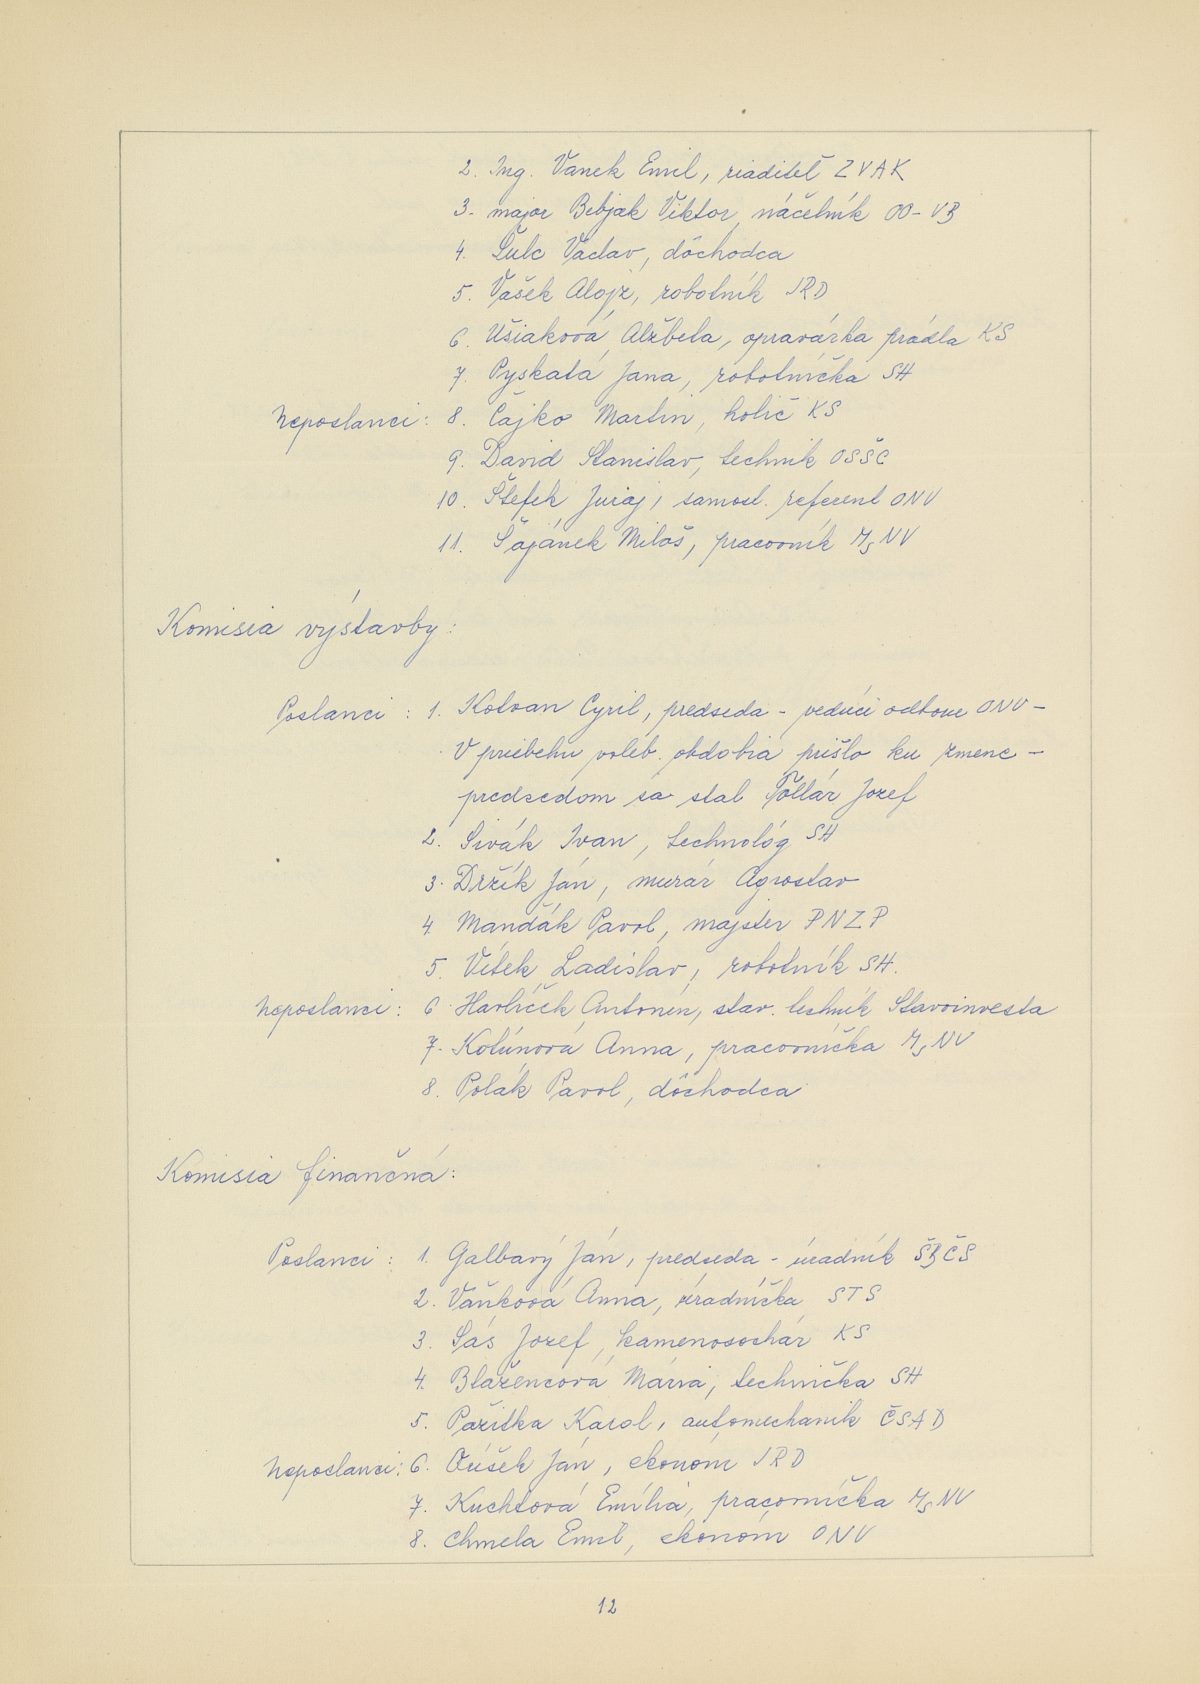 2. Ing. Vanek Emil, riaditeľ ZVAK
3. major Bebjak Viktor, náčelník OO-VB
4. Šulc Václav, dôchodca
5. Vašek Alojz, robotník JRD
6. Ušiaková Alžbeta, opravárka prádla KS
7. Pyskatá Jana, robotníčka SH
Neposlanci: 8. Čajko Martin, holič KS
9. David Stanislav, technik OSŠC
10. Štefek Juraj, samost. referent ONV
11. Šajánek Miloš, pracovník MsNV
Komisia výstavby:
Poslanci : 1. Kotvan Cyril, predseda - vedúci odboru ONV -
V priebehu voleb. obdobia prišlo ku zmene -
predsedom sa stal Töllár Jozef
2. Sivák Ivan, technológ SH
3. Držík Ján, murár Agrostav
4. Mandák Pavol, majster PNZP
5. Vítek Ladislav, robotník SH.
Neposlanci: 6. Havlíček Antonín, stav. technik Stavoinvesta
7. Kotúnová Anna, pracovníčka MsNV
8. Polák Pavol, dôchodca
Komisia finančná:
Poslanci : 1. Galbavý Ján, predseda - úradník ŠBČS
2. Vaňková Anna, úradníčka STS
3. Sás Jozef, kamenosochár KS
4. Blažencová Mária, technička SH
5. Pažitka Karol, automechanik ČSAD
Neposlanci: 6. Ján, ekonóm JRD
7. Kuchtová Emília, pracovníčka MsNV
8. Chmela Emil, ekonóm ONV
12